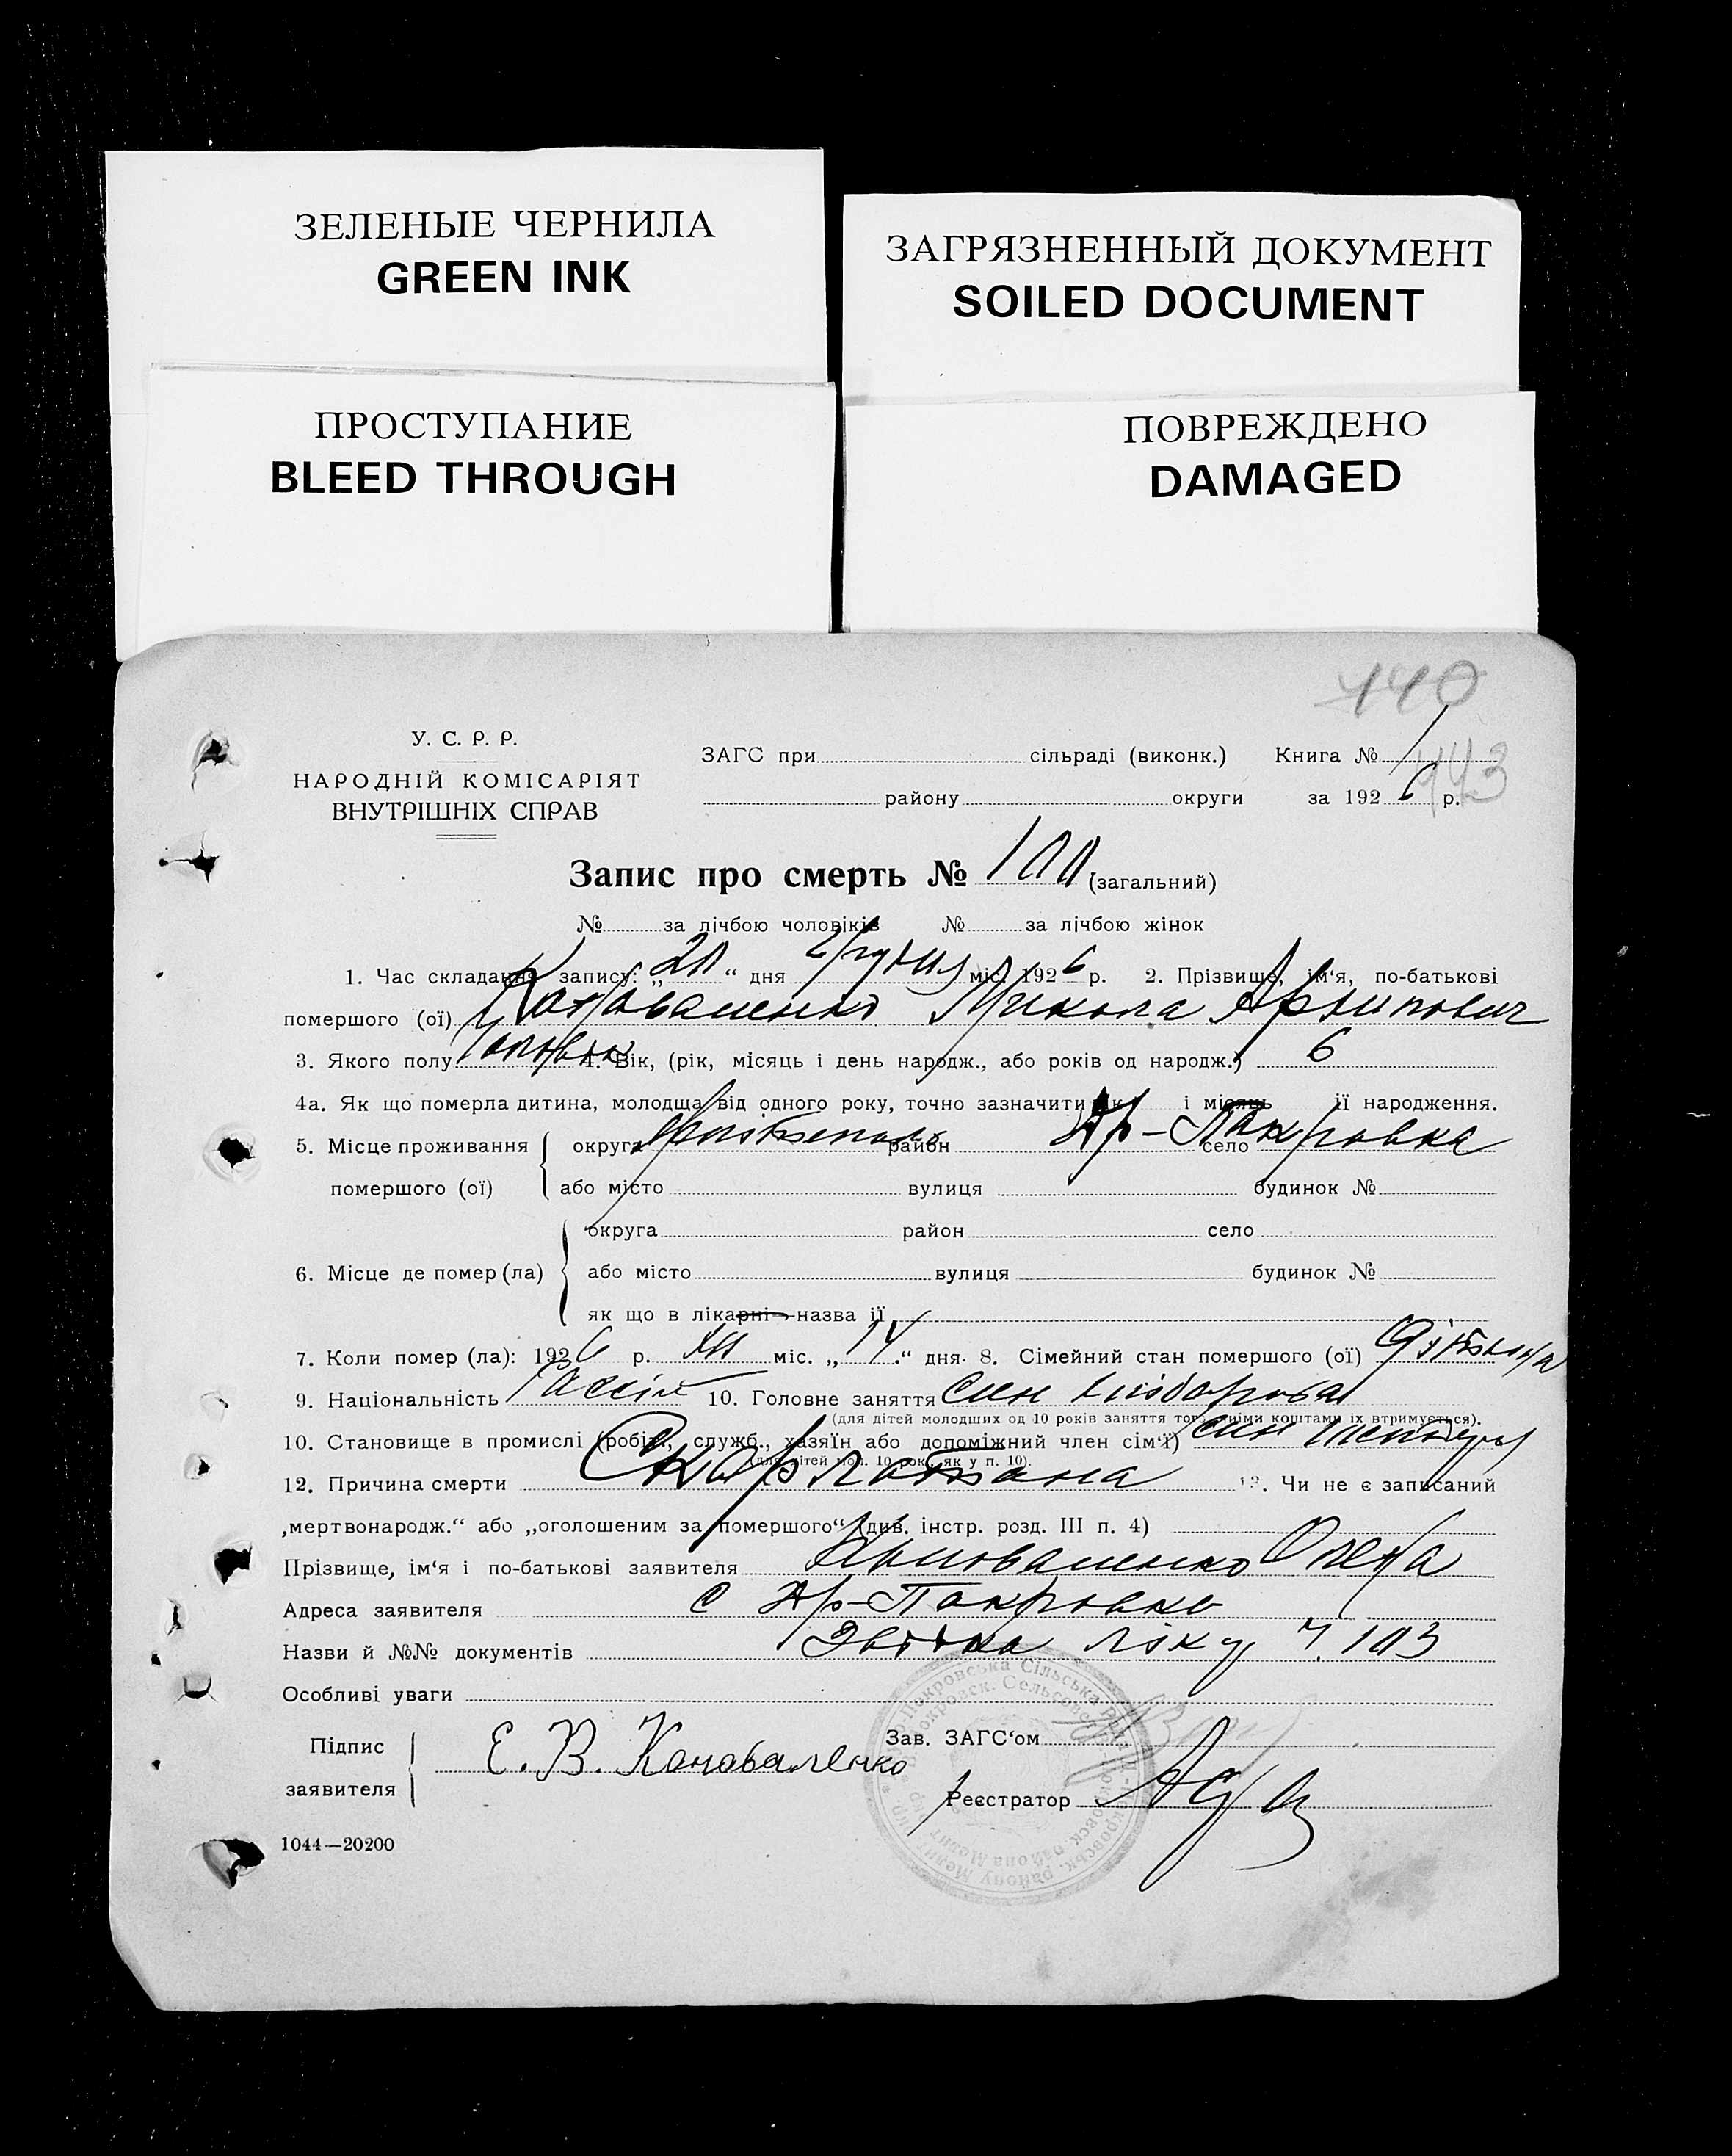 ЗЕЛЕНЫЕ ЧЕРНИЛА
GREEN INK
ЗАГРЯЗНЕННЫЙ ДОКУМЕНТ
SOILED DOCUMENT
ПРОСТУПАНИЕ
BLEED THROUGH
ПОВРЕЖДЕНО
DAMAGED
140
У. С. Р. Р.
НАРОДНІЙ КОМІСАРІЯТ
ВНУТРІШНІХ СПРАВ
ЗАГС при сільраді (виконк.) Книга №
443
району округи за 1926 р.
Запис про смерть № 100 (загальний)
№ за лічбою чоловіків № за лічбою жінок
1. Час складання запису: „20“ дня Грудня міс. 1926 р. 2. Прізвище, ім‘я, по-батькові
помершого (ої) Коноваленко Микола Архипович
3. Якого полу Чоловік 4. Вік, (рік, місяць і день народж., або років од народж.) 6
4а. Як що померла дитина, молодща від одного року, точно зазначити рік і місяць її народження.
5. Місце проживання округа район село Покровка
помершого (ої) або місто вулиця будинок №
округа район село
6. Місце де помер (ла) або місто вулиця будинок №
як що в лікарні назва її
7. Коли помер (ла): 1926 р. XII міс. „14“ дня. 8. Сімейний стан помершого (ої)
9. Національність 10. Головне заняття син хлібороба
(для дітей молодших од 10 років заняття того, чиїми коштами їх втримується).
10. Становище в промислі (робіт., служб., хазяїн або допоміжний член сім‘ї) син
(для дітей мол. 10 рок. як у п. 10).
12. Причина смерти Скарлатина 13. Чи не є записаний
„мертвонародж.“ або „оголошеним за помершого“ (див. інстр. розд. III п. 4)
Прізвище, ім‘я і по-батькові заявителя Коноваленко
Адреса заявителя с Покровка
Назви й №№ документів Звістка Ліку Ч. 103
Особливі уваги
Підпис
заявителя
Е. В. Коноваленко
Зав. ЗАГС‘ом
Реєстратор
1044—20200